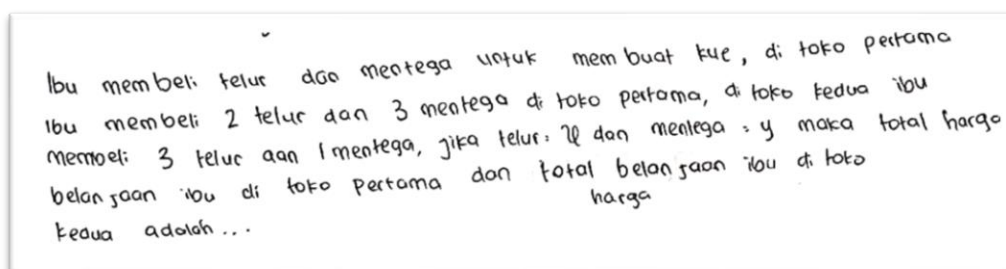 Ibu membeli telur dan mentega untuk membuat kue, di toko pertama
Ibu membeli 2 telur dan 3 mentega di toko pertama, di toko kedua ibu
membeli 3 telur dan 1 mentega, jika telur = x dan mentega = y maka total harga
belanjaan ibu di toko pertama dan total belanjaan ibu di toko
harga
kedua adalah ...